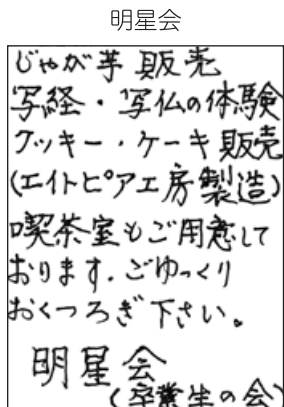 明星会
じゃが芋販売
写経・写仏の体験
クッキー・ケーキ販売
(エイトピア工房製造)
喫茶室もご用意して
おります.ごゆっくり
おくつろぎ下さい。
明星会
(卒業生の会)